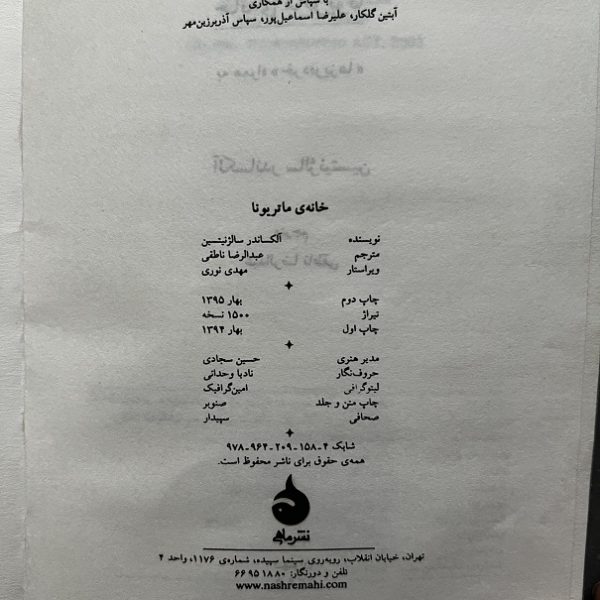 با سپاس از همکاری
آبتین گلکار، علیرضا اسماعیل‌پور، سپاس آذربرزین‌مهر
خانه‌ی ماتریونا
نویسنده آلکساندر سالژنیتسین
مترجم عبدالرضا ناطقی
ویراستار مهدی نوری
چاپ دوم بهار ۱۳۹۵
تیراژ ۱۵۰۰ نسخه
چاپ اول بهار ۱۳۹۴
مدیر هنری حسین سجادی
حروف‌نگار نادیا وحدانی
لیتوگرافی امین‌گرافیک
چاپ متن و جلد صنوبر
صحافی سپیدار
شابک ۴-۱۵۸-۲۰۹-۹۶۴-۹۷۸
همه‌ی حقوق برای ناشر محفوظ است.
نشرماهی
تهران، خیابان انقلاب، روبه‌روی سینما سپیده، شماره‌ی ۱۱۷۶، واحد ۴
تلفن و دورنگار: ۶۶ ۹۵ ۱۸ ۸۰
www.nashremahi.com